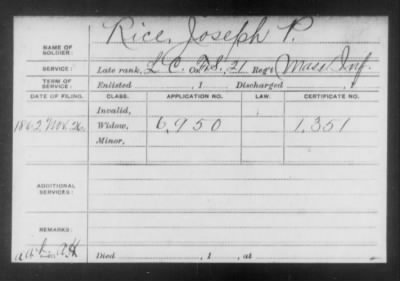 Rice, Joseph P.
NAME OF SOLDIER:
SERVICE: Late rank, L C. On F.S. 21 Reg't Mass Inf.
TERM OF SERVICE: Enlisted , 1 Discharged , 1
DATE OF FILING. CLASS. APPLICATION NO. LAW. CERTIFICATE NO.
Invalid,
1862 Nov. 26, Widow, 6,950 1,351
Minor,
ADDITIONAL SERVICES:
REMARKS:
Died , 1 , at